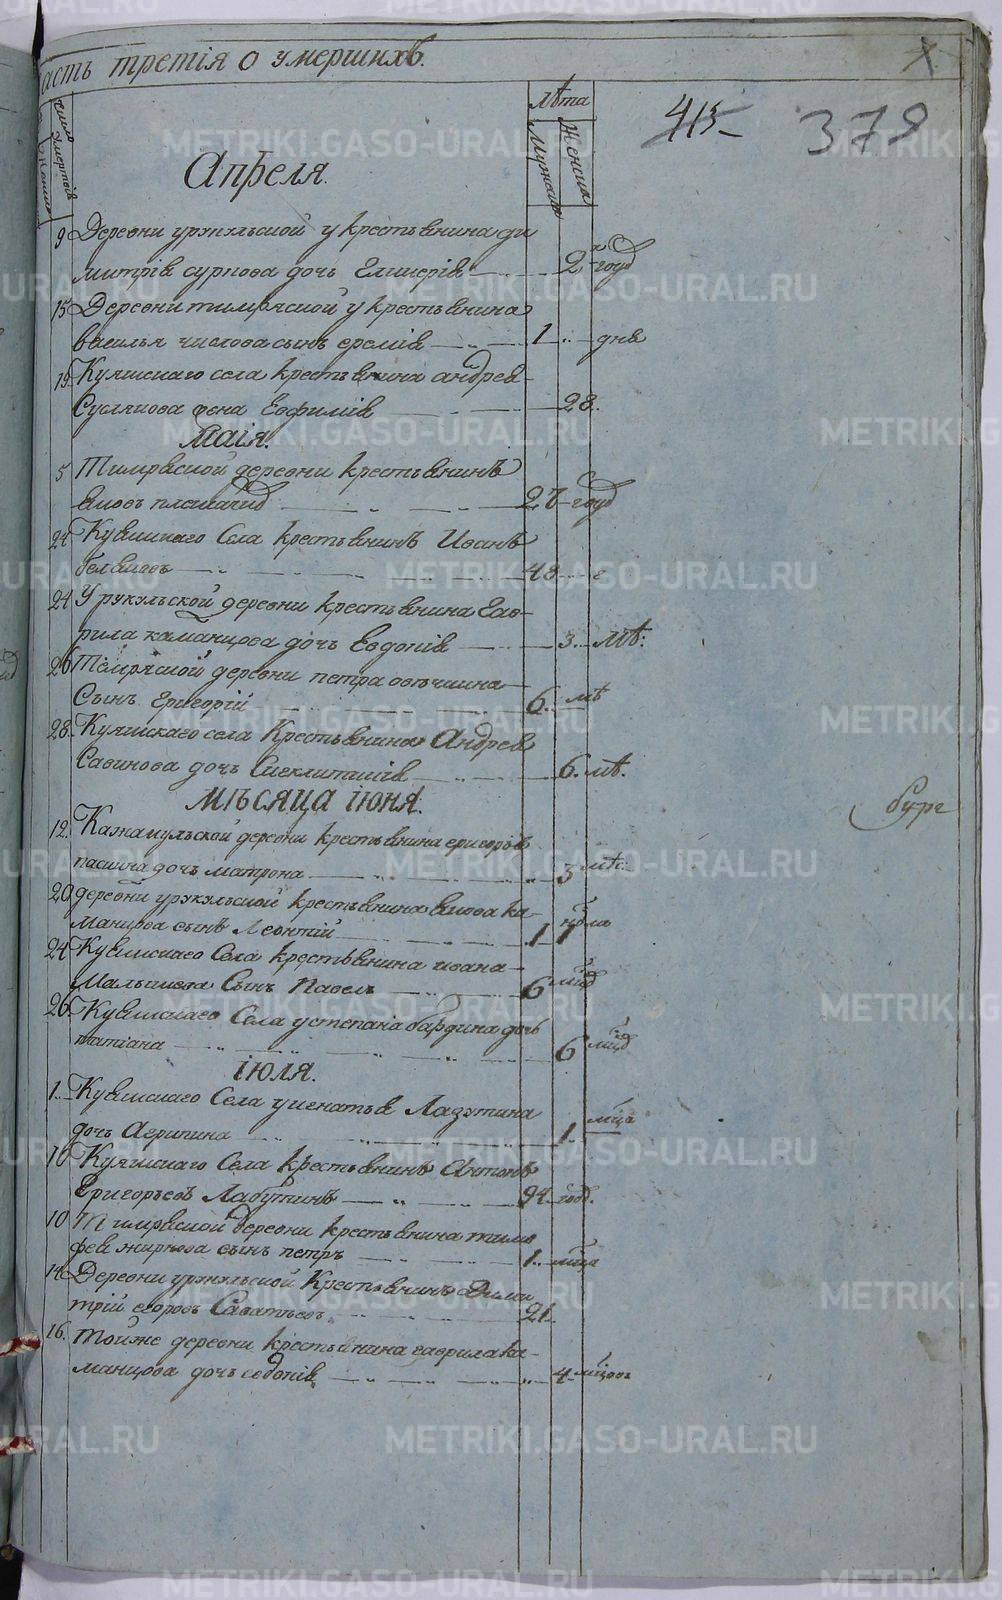 асть третія о умершихъ.
415 379
число умертвій
лѣта
мужска
женска
Апреля.
9 Деревни урукульской у крестьянина ди
митрія суркова дочь Гликерія 2 году
15 Деревни тимряской у крестьянина
василья числова сынъ еремія 1 дня
19 Куяшскаго села крестьянина андрея
Суслякова жена Евфимія 28.
Маія.
5 Тимряской деревни крестьянинъ
27 году
24 Куяшскаго Села крестьянинъ Иванъ
48
24 Урукульской деревни крестьянина Гав-
рила каманцова дочь Евдокія 3 мѣ:
26 Тимряской деревни петра овѣчкина
Сынъ григорій 6. мѣ
28. Куяшскаго села Крестьянина Андрея
Савинова дочь 6. мѣ.
мѣсяца іюня.
буре
12. деревни крестьянина григорья
пашина дочь матрона 3 мѣс.
20 деревни урукульской крестьянина якова ка-
манцова сынъ Леонтій 1
24 Куяшскаго Села крестьянина ивана
Малышева Сынъ Павелъ 6
26 Куяшскаго Села у степана бардина дочь
татіана 6
іюля.
1. Куяшскаго Села у игнатья Лазутина
дочь Агрипина 1 мѣца
10 Куяшскаго Села крестьянинъ Антонъ
Григорьевъ Лабутинъ 94 год.
10 Тимряской деревни крестьянина тимо
фея жиркова сынъ петръ 1. мѣца
14 Деревни урукульской Крестьянинъ Дими
трій егоровъ Саватѣевъ 21
16. Тойже деревни крестьянина гаврила ка-
манцова дочь евдокія 4 мѣцовъ
METRIKI.GASO-URAL.RU